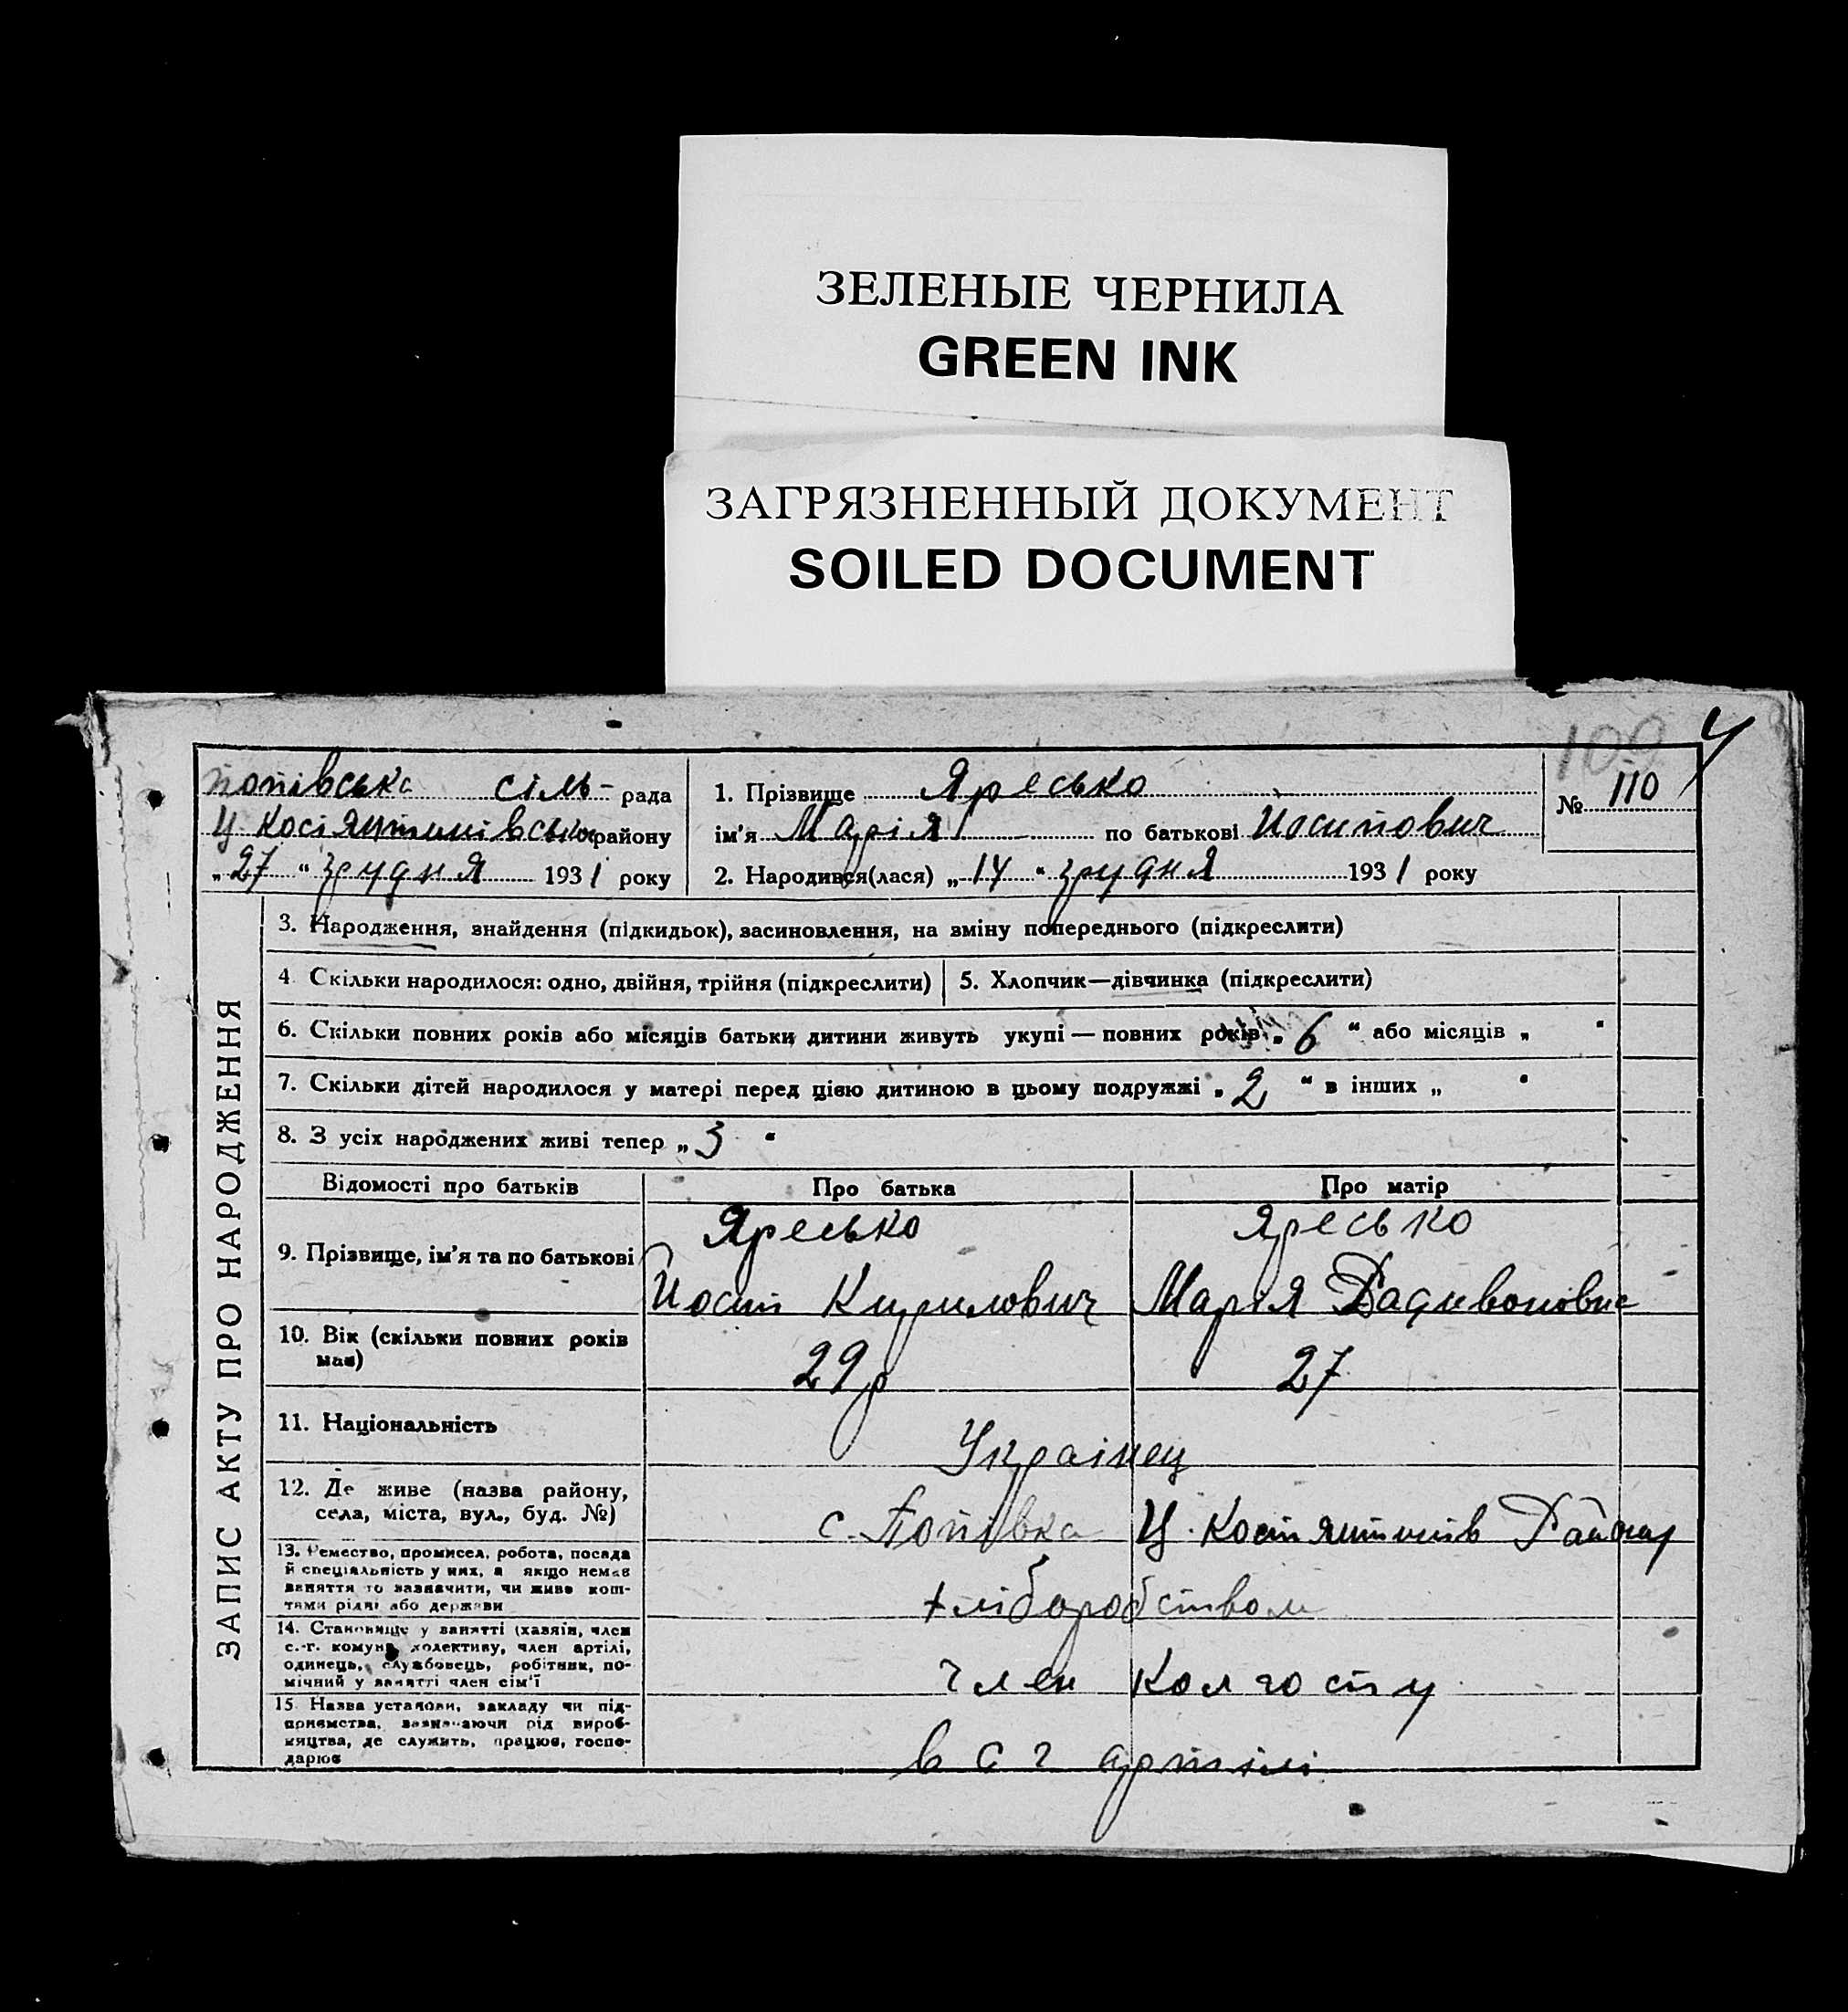 ЗЕЛЕНЫЕ ЧЕРНИЛА
GREEN INK
ЗАГРЯЗНЕННЫЙ ДОКУМЕНТ
SOILED DOCUMENT
109 У
попівська сіль- рада
Ц Косіянтинівськ району
„27“ грудня 1931 року
1. Прізвище Яресько
ім'я Марія по батькові Йосипович
2. Народився(лася) „14“ грудня 1931 року
№ 110
ЗАПИС АКТУ ПРО НАРОДЖЕННЯ
3. Народження, знайдення (підкидьок), засиновлення, на зміну попереднього (підкреслити)
4. Скільки народилося: одно, двійня, трійня (підкреслити)
5. Хлопчик—дівчинка (підкреслити)
6. Скільки повних років або місяців батьки дитини живуть укупі — повних років „6“ або місяців „ “
7. Скільки дітей народилося у матері перед цією дитиною в цьому подружжі „2“ в інших „ “
8. З усіх народжених живі тепер „3“
Відомості про батьків
Про батька
Про матір
9. Прізвище, ім'я та по батькові
Яресько
Йосип Кирилович
Яресько
Марія Радивонівна
10. Вік (скільки повних років
має)
29р
27
11. Національність
Українец
12. Де живе (назва району,
села, міста, вул., буд. №)
с. Попівка Ц. Костянтинів Району
13. Ремество, промисел, робота, посада
й спеціальність у них, а якщо немає
заняття то зазначити, чи живе кош-
тами рідні або держави
хліборобством
14. Становище у занятті (хазяїн, член
с.-г. комуни, колективу, член артілі,
одинець, службовець, робітник, по-
мічний у занятті член сім'ї
член колгоспу
15. Назва установи, закладу чи під-
приємства, зазначаючи рід вироб-
ництва, де служить, працює, госпо-
дарює
в с г артілі